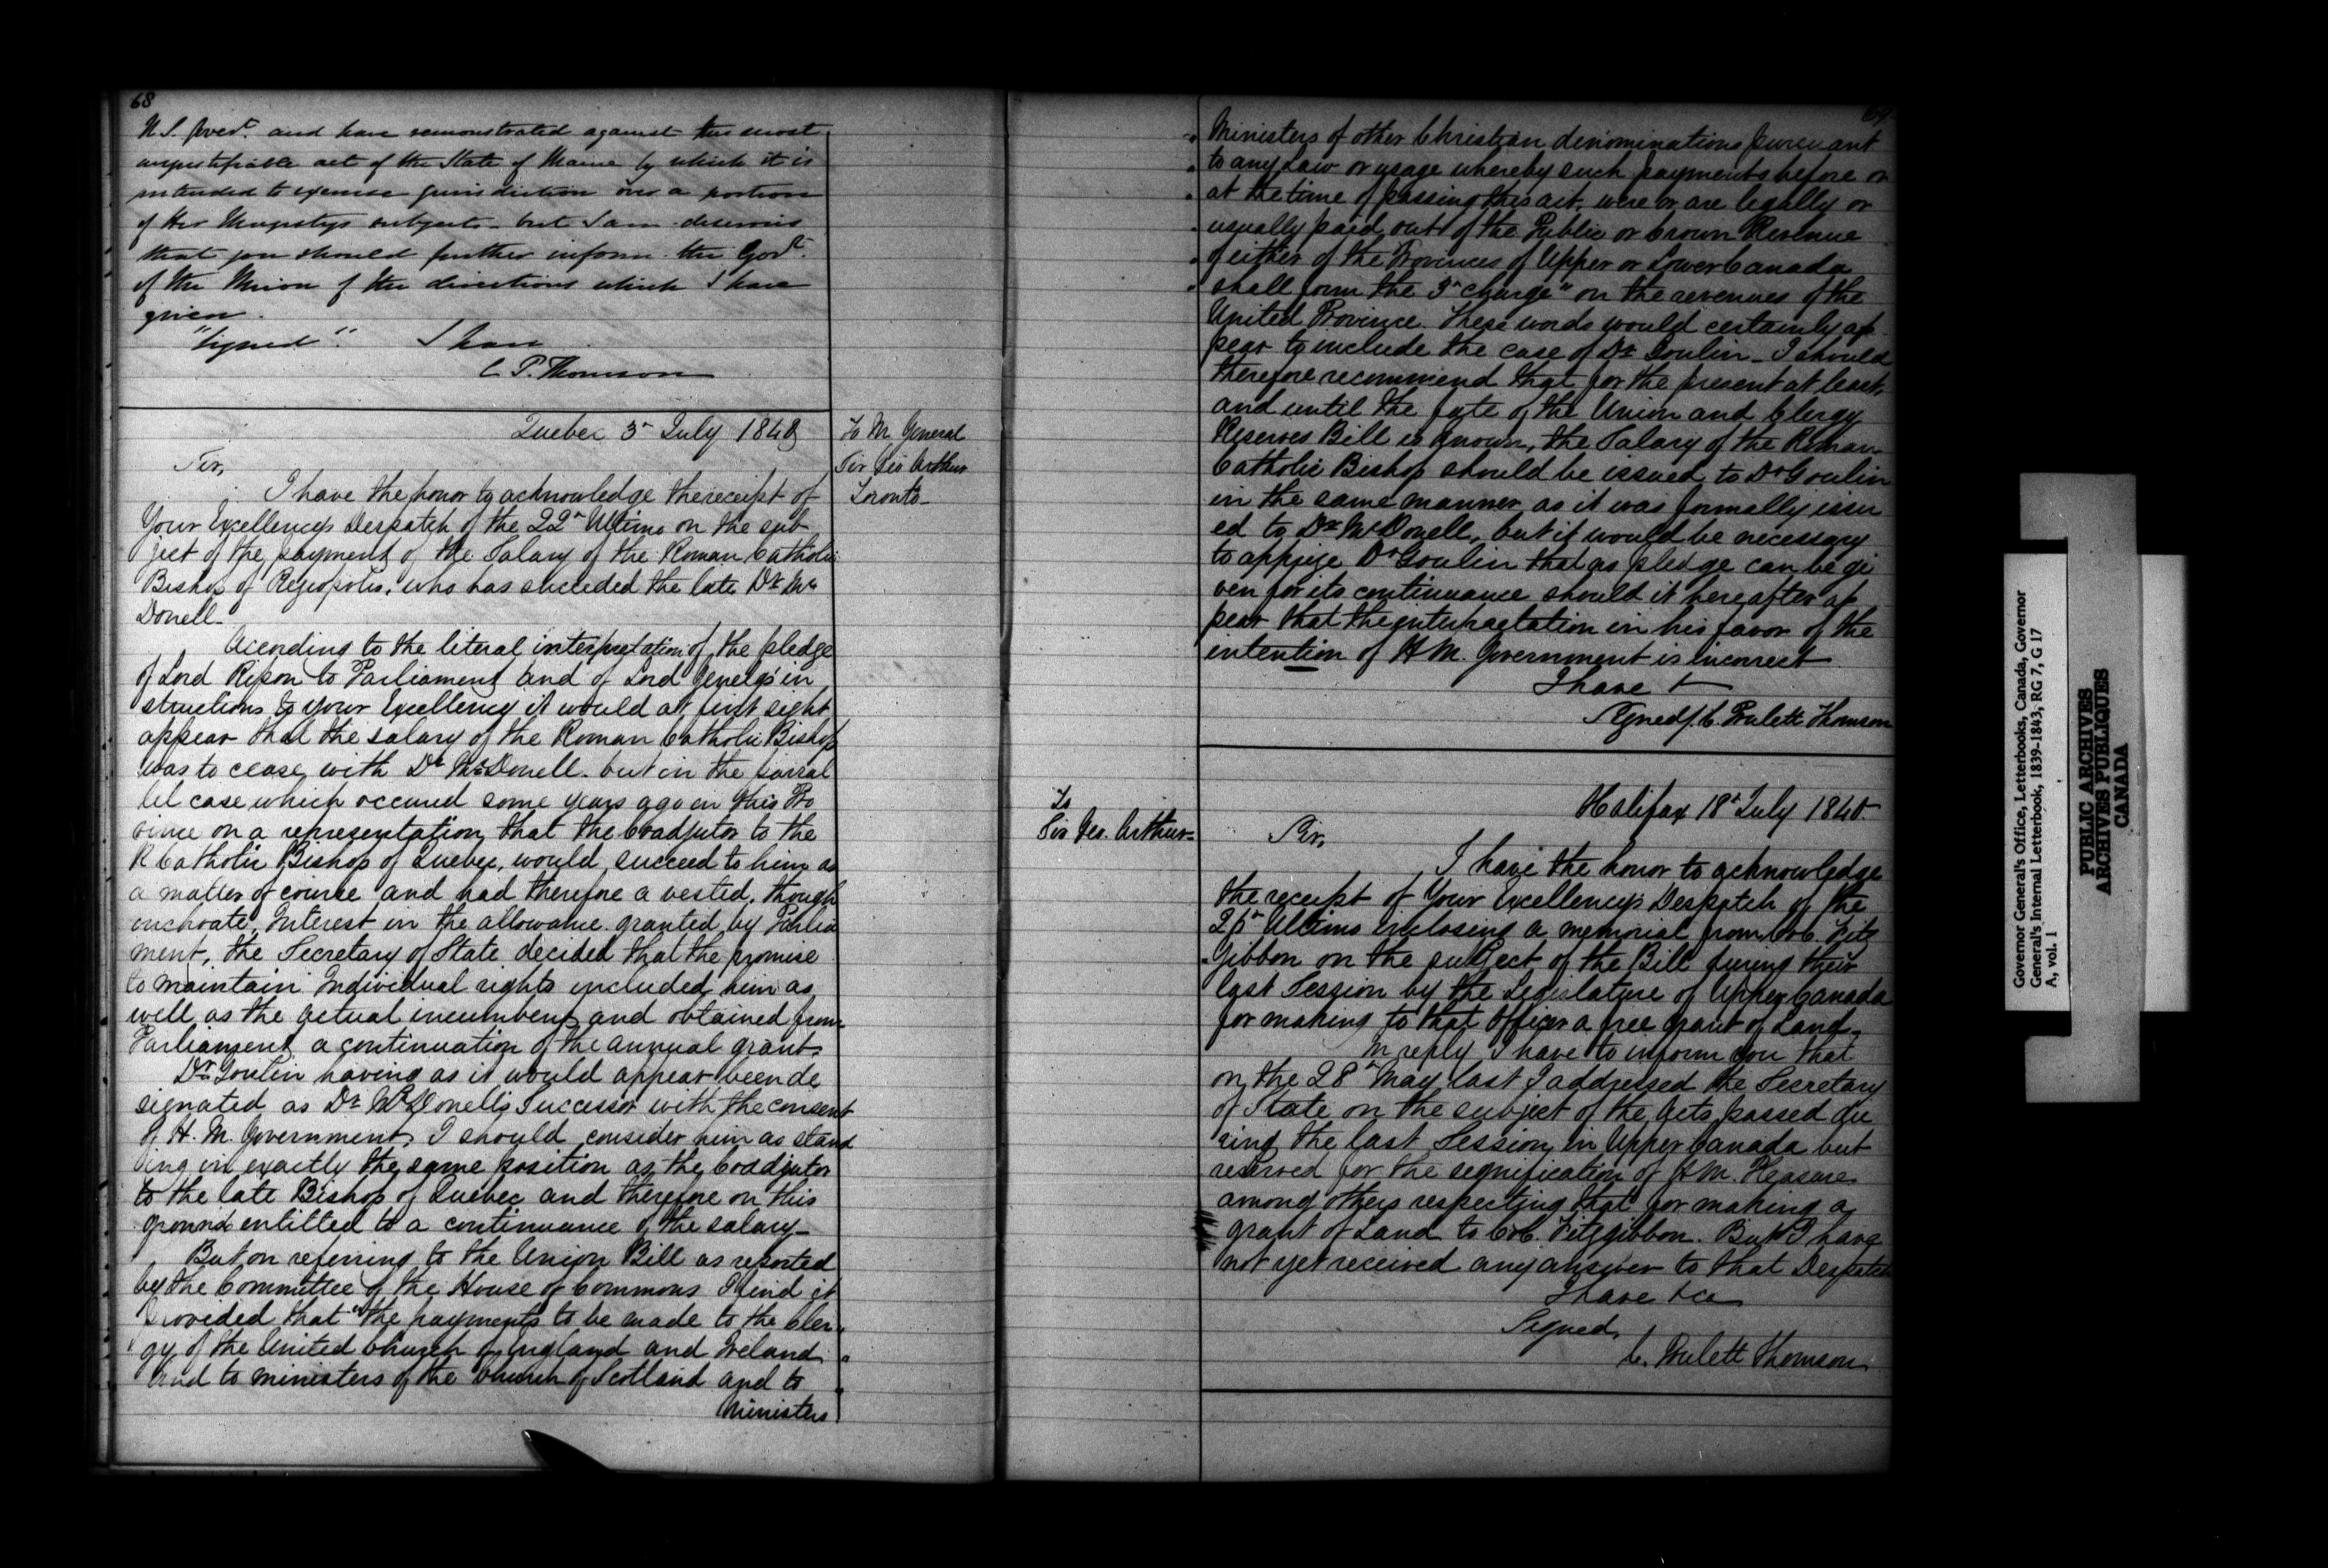 68
U.S. Govert. and have remonstrated against this most
unjustifiable act of the State of Maine by which it is
intended to exercise jurisdiction over a portion
of Her Majestys subjects - but I am desirous
that you should further inform the Govt.
of the Union of the directions which I have
given.
"Signed". I have
C. P. Thomson
Quebec 3d July 1840
To M. General
Sir Geo Arthur
Toronto
Sir,
I have the honor to acknowledge the receipt of
Your Excellency's Despatch of the 22d Ultimo on the sub
ject of the payment of the Salary of the Roman Catholic
Bishop of Regiopolis, who has succeded the late Dr. Mc
Donell
Acording to the literal interpretation of the pledge
of Lord Ripon to Parliament and of Lord Glenelg's in
structions to your Excellency it would at first sight
appear that the salary of the Roman Catholic Bishop
was to cease with Dr McDonell. but in the parral
lel case which occured some years ago in this Pro
vince on a representation that the Coadjutor to the
R Catholic Bishop of Quebec, would succeed to him as
a matter of course and had therefore a vested, though
inchoate, Interest in the allowance granted by Parlia
ment, the Secretary of State decided that the promise
to maintain Individual rights included him as
well as the actual incumbent and obtained from
Parliament a continuation of the annual grant.
Dr Goulin having as it would appear been de
signated as Dr McDonell's Successor with the consent
of H. M. Government, I should consider him as stand
ing in exactly the same position as the Coadjutor
to the late Bishop of Quebec and therefore on this
ground entitled to a continuance of the salary
But on referring to the Union Bill as reported
by the Committee of the House of Commons I find it
Provided that "the payments to be made to the cler
gy of the United Church of England and Ireland
and to ministers of the Church of Scotland and to
Ministers
69
Ministers of other Christian dinominations pursuant
to any Law or usage whereby such payments before or
at the time of passing this act, were or are legally or
usually paid out of the Public or Crown Revenue
of either of the Provinces of Upper or Lower Canada
shall form the 3d charge" on the revenues of the
United Province. These words would certainly ap
pear to include the case of Dr Goulin - I should
therefore recommend that for the present at least,
and until the fate of the Union and Clergy
Reserves Bill is known, the Salary of the Roman
Catholic Bishop should be issued to Dr Goulin
in the same manner as it was formally issu
ed to Dr McDonell, but it would be necessary
to apprize Dr Goulin that as pledge can be gi
ven for its continuance should it hereafter ap
pear that the interpretation in his favor of the
intention of H M. Government is incorrect
I have &
Signed/. C. Poulett Thomson
Halifax 18th July 1840.
To
Sir Geo. Arthur
Sir,
I have the honor to acknowledge
the receipt of Your Excellency's Despatch of the
Ultimo inclosing a memorial from Col. Fitz
Gibbon on the subject of the Bill during their
last Session by the Legislature of Upper Canada
for making to that Officer a free grant of Land.
In reply I have to inform you that
on the 28th May last I addressed the Secretary
of State on the subject of the Acts passed du
ring the last Session in Upper Canada but
reserved for the signification of H M. Pleasure
among others respecting that for making a
grant of Land to Col. Fitzgibbon. But I have
not yet received any answer to that Despatch
I have &ca
Signed,
C. Poulett Thomson
Governor General's Office, Letterbooks, Canada, Governor
General's Internal Letterbook, 1839-1843, RG 7, G 17
A, vol. 1
PUBLIC ARCHIVES
ARCHIVES PUBLIQUES
CANADA